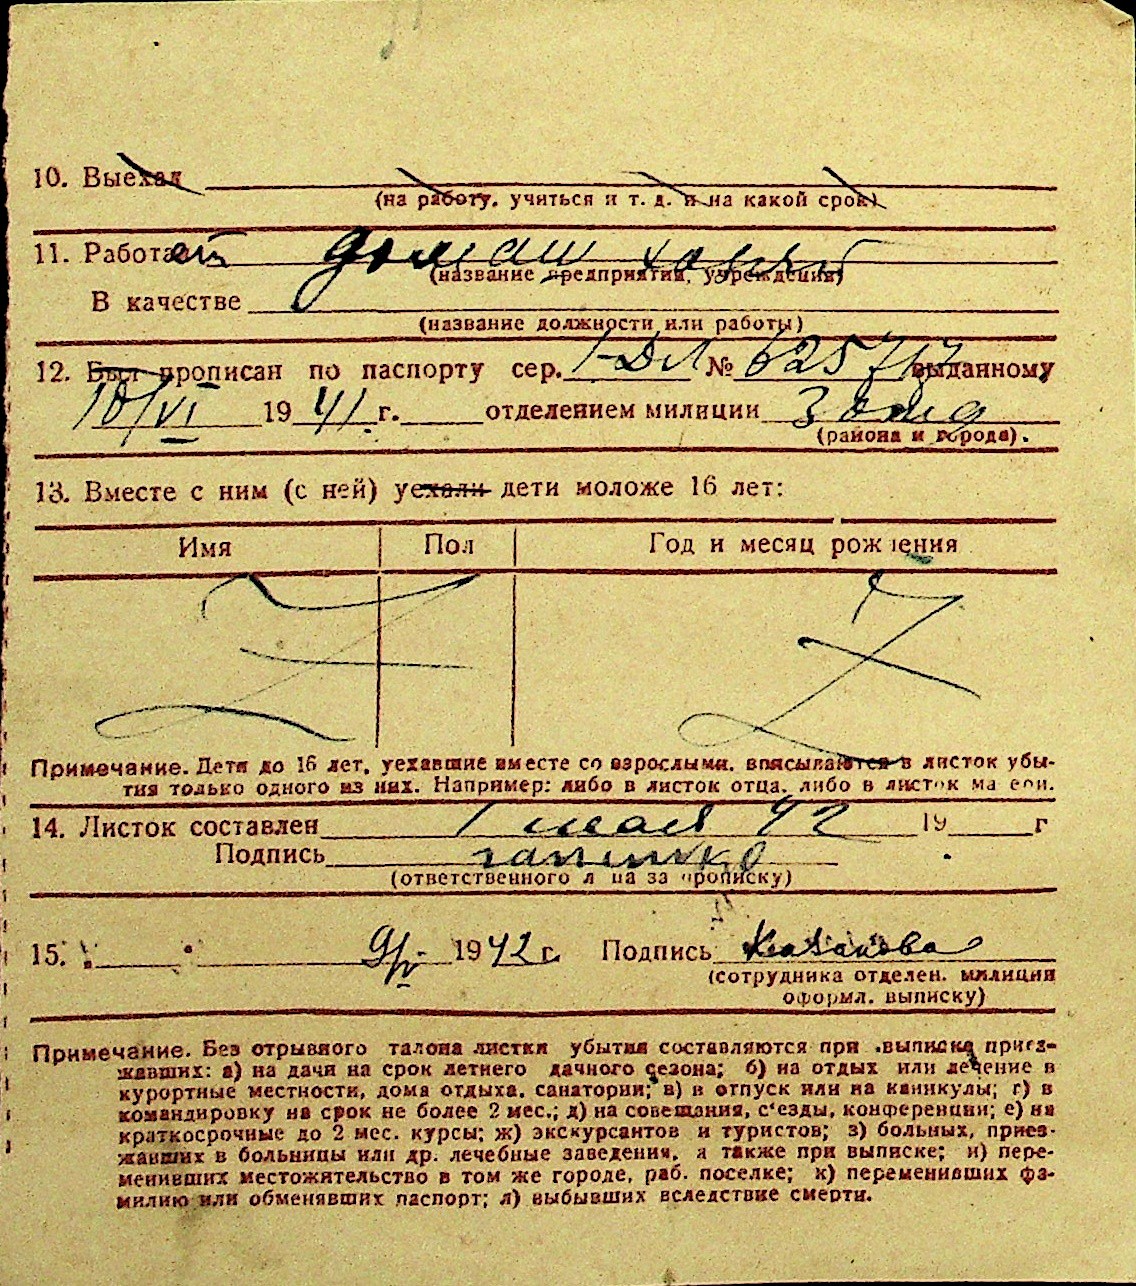 10. Выехал
(на работу, учиться и т. д. и на какой срок)
11. Работает домаш хозяй
(название предприятия, учреждения)
В качестве
(название должности или работы)
12. Был прописан по паспорту сер. 1-ДЛ № 625717 выданному
10/VI 1941 г. отделением милиции 3
(района и города).
13. Вместе с ним (с ней) уехали дети моложе 16 лет:
Имя Пол Год и месяц рождения
Z Z
Примечание. Дети до 16 лет, уехавшие вместе со взрослыми, вписываются в листок убы-
тия только одного из них. Например: либо в листок отца, либо в листок матери.
14. Листок составлен 1 мая 42 19 г
Подпись
(ответственного лица за прописку)
15. 9/V 1942 г. Подпись Казакова
(сотрудника отделен. милиции
оформл. выписку)
Примечание. Без отрывного талона листки убытия составляются при выписке приез-
жавших: а) на дачи на срок летнего дачного сезона; б) на отдых или лечение в
курортные местности, дома отдыха, санатории; в) в отпуск или на каникулы; г) в
командировку на срок не более 2 мес.; д) на совещания, с'езды, конференции; е) на
краткосрочные до 2 мес. курсы; ж) экскурсантов и туристов; з) больных, приез-
жавших в больницы или др. лечебные заведения, а также при выписке; и) пере-
менивших местожительство в том же городе, раб. поселке; к) переменивших фа-
милию или обменявших паспорт; л) выбывших вследствие смерти.